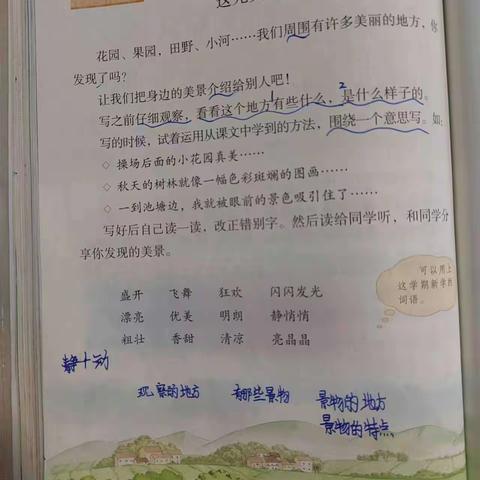 花园、果园，田野、小河……我们周围有许多美丽的地方，你
发现了吗？
让我们把身边的美景介绍给别人吧！
写之前仔细观察，看看这个地方有些什么，是什么样子的。
1 2
写的时候，试着运用从课文中学到的方法，围绕一个意思写。如：
◇ 操场后面的小花园真美……
◇ 秋天的树林就像一幅色彩斑斓的图画……
◇ 一到池塘边，我就被眼前的景色吸引住了……
写好后自己读一读，改正错别字。然后读给同学听，和同学分
享你发现的美景。
可以用上
这学期新学的
词语。
盛开 飞舞 狂欢 闪闪发光
漂亮 优美 明朗 静悄悄
粗壮 香甜 清凉 亮晶晶
静+动
观察的地方 有哪些景物 景物的地方
景物的特点